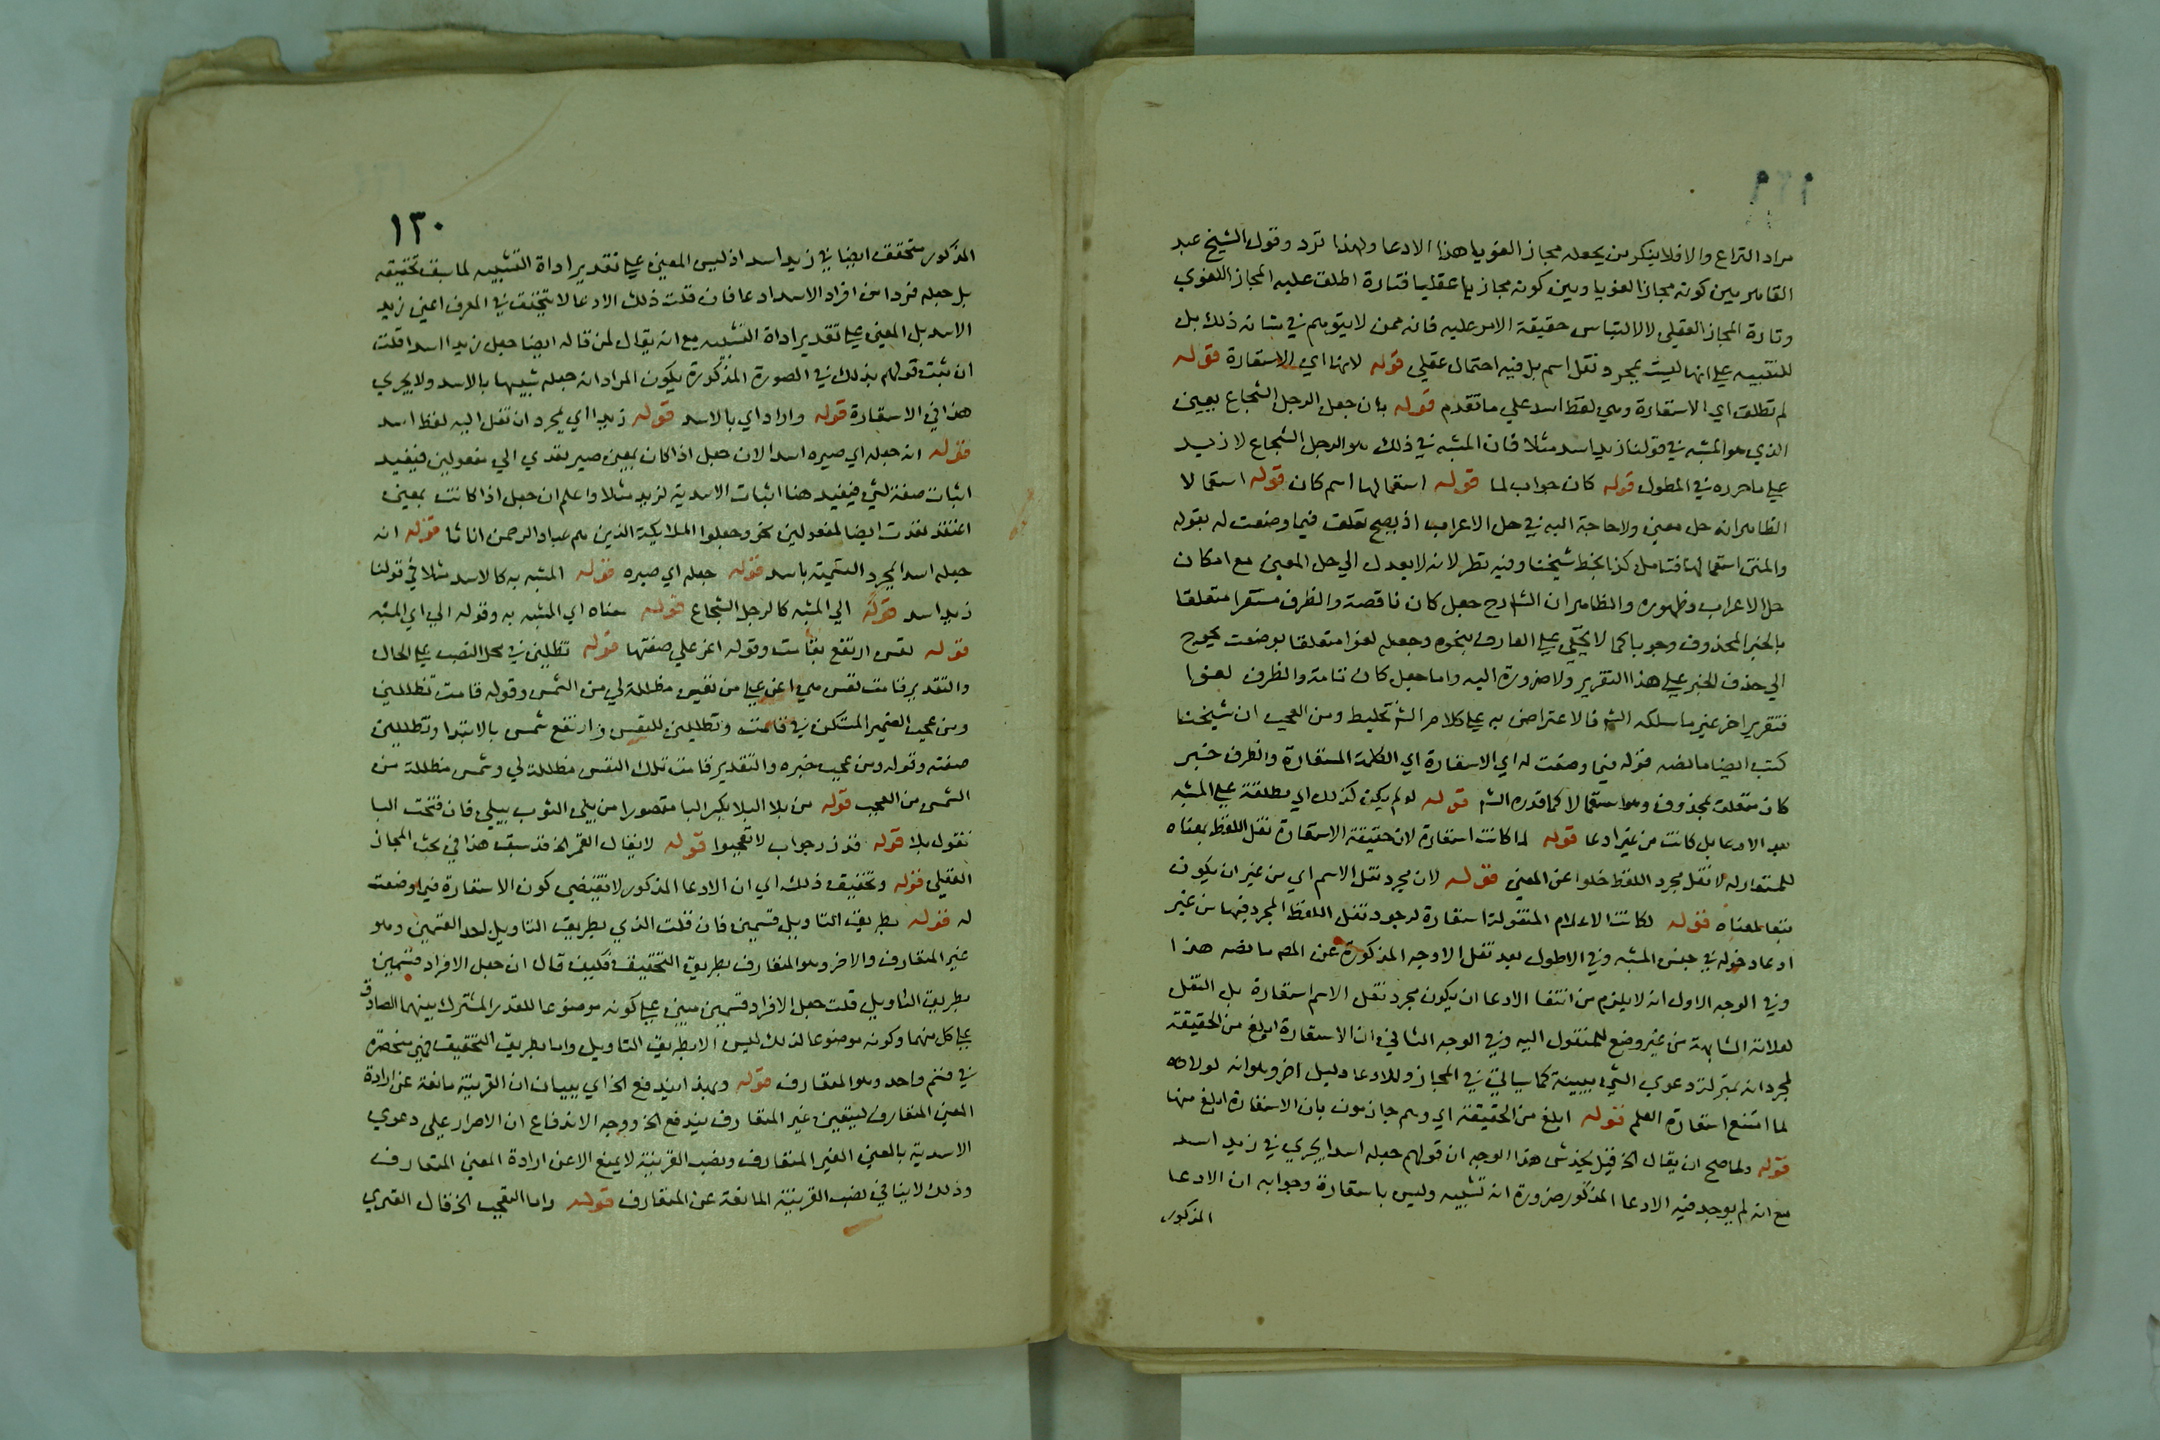 مراد النزاع والا فلا ينكر من يجعله مجازا لغويا هذا الادعا ولهذا ترد وقول الشيخ عبد
القاهر بين كونه مجازا لغويا وبين كونه مجازيا عقليا فتارة اطلق عليه المجاز اللغوي
وتارة المجاز العقلي لا لالتباس حقيقة الامر عليه فانه ممن لا يتوهم في شانه ذلك بل
للتنبيه علي انها ليست بمجرد نقل اسم بل فيه احتمال عقلي قوله لانها اي الاستعارة قوله
لم تطلق اي الاستعارة وهي لفظ اسد علي ما تقدم قوله بان جعل الرجل الشجاع بعين
الذي هو المشبه في قولنا زيد اسد مثلا فان المشبه في ذلك هو الرجل الشجاع لا زيد
علي ما حرره في المطول قوله كان جواب لما قوله استعمالها اسم كان قوله استعمالا
الظاهر انه حل معني ولا حاجة اليه في حل الاعراب اذ يصح تعلق فيما وضعت له بقوله
والمنى استعمالها فتامل كذا بخط شيخنا وفيه نظر لانه لا يعدل الي حل المعني مع امكان
حل الاعراب وظهوره والظاهر ان الشارح جعل كان ناقصة والظرف مستقرا متعلقا
بالخبر المحذوف وجوبا كما لا يخفي علي العارف بنحوه وجعله لغوا متعلقا بوضعت يحوج
الي حذف الخبر علي هذا التقرير ولا ضرورة اليه واما جعل كان تامة والظرف لغوا
فتقرير اخر غير ما سلكه الش فالاعتراض به علي كلام الش تخليط ومن العجب ان شيخنا
كتب ايضا ما نصه قوله فيما وضعت له اي الاستعارة اي الكلمة المستعارة والظرف خبر
كان متعلق بمحذوف وهو استعمالا كما قدره الش قوله لو لم يكن كذلك اي مطلقة علي المشبه
بعد الادعا بل كانت من غير ادعا قوله لما كانت استعارة لان حقيقة الاستعارة نقل اللفظ بمعناه
للمستعار له لا نقل مجرد اللفظ خلوا عن المعني قوله لان مجرد نقل الاسم اي من غير ان يكون
تبعا لمعناه قوله لكانت الاعلام المنقولة استعارة لوجود نقل اللفظ المجرد فيها من غير
ادعا دخوله في جنس المشبه وفي الاطول بعد نقل الاوجه المذكورة عن المصـ ما نصه هذا
وفي الوجه الاول انه لا يلزم من انتفا الادعا ان يكون مجرد نقل الاسم استعارة بل النقل
لعلاقة المشابهة من غير وضع للمنقول اليه وفي الوجه الثاني ان الاستعارة ابلغ من الحقيقة
لمجرد انه بمنزلة دعوي الشي ببينة كما سياتي في المجاز وللادعا دليل اخر وهو انه لولاه
لما امتنع استعارة العلم قوله ابلغ من الحقيقة اي وهم جازمون بان الاستعارة ابلغ منها
قوله ولما صح ان يقال الخ قيل يخدش هذا الوجه ان قولهم جعله اسدا يجري في زيد اسد
مع انه لم يوجد فيه الادعا المذكور ضرورة انه تشبيه وليس باستعارة وجوابه ان الادعا
المذكور
١٣٠
المذكور متحقق ايضا في زيد اسد اذ ليس المعني علي تقدير اداة التشبيه لما سبق تحقيقه
بل جعله فردا من افراد الاسد ادعا فان قلت ذلك الادعا لا يتحقق في المعرف اعني زيد
الاسد بل المعني علي تقدير اداة التشبيه مع انه يقال لمن قاله ايضا جعل زيدا اسدا قلت
ان ثبت قولهم بذلك في الصورة المذكورة يكون المراد انه جعله شبيها بالاسد ولا يجري
هذا في الاستعارة قوله واراد اي بالاسد قوله زيدا اي بمجرد ان نقل اليه لفظ اسد
قوله انه جعله اي صيره اسدا لان جعل اذا كان بمعني صير تعدي الي مفعولين فيفيد
اثبات صفة لشي فيفيد هنا اثبات الاسدية لزيد مثلا واعلم ان جعل اذا كانت بمعني
اعتقد تعدت ايضا لمفعولين نحو وجعلوا الملايكة الذين هم عباد الرحمن اناثا قوله انه
جعله اسدا لمجرد التسمية باسد قوله جعله اي صيره قوله المشبه به كالاسد مثلا في قولنا
زيد اسد قوله الي المشبه كالرجل الشجاع قوله معناه اي المشبه به وقوله الي اي المشبه
قوله نفس ارتفع بقامت وقوله اعز علي صفتها قوله تظللني في محل النصب علي الحال
والتقدير قامت نفس هي اعز علي من نفسي مظللة لي من الشمس وقوله قامت تظللني
ومن عجب الضمير المستكن في قامت وتظللني للنفس وارتفع شمس بالابتدا وتظللني
صفته وقوله ومن عجب خبره والتقدير قامت تلك النفس مظللة لي وشمس مظللة من
الشمس من العجب قوله من بلا البلا بكسر البا مقصورا من بلي الثوب يبلي فان فتحت البا
تقول بلا قوله قد زر جواب لا تعجبوا قوله لا يقال القمر الخ قد سبق هذا في بحث المجاز
العقلي قوله وتحقيق ذلك اي ان الادعا المذكور لا يقتضي كون الاستعارة فيما وضعت
له قوله بطريق التاويل قسمين فان قلت الذي بطريق التاويل احد القسمين وهو
غير المتعارف والاخر وهو المتعارف بطريق التحقيق فكيف قال ان جعل الافراد قسمين
بطريق التاويل قلت جعل الافراد قسمين مبني علي كونه موضوعا للقدر المشترك بينهما الصادق
علي كل منهما وكونه موضوعا لذلك ليس الا بطريق التاويل واما بطريق التحقيق فهي منحصرة
في قسم واحد وهو المتعارف قوله وبهذا يندفع الخ اي ببيان ان القرينة مانعة عن ارادة
المعني المتعارف ليتعين غير المتعارف يندفع الخ ووجه الاندفاع ان الاصرار علي دعوي
الاسدية بالمعني الغير المتعارف ونصب القرينة لا يمنع الا عن ارادة المعني المتعارف
وذلك لا ينافي نصب القرينة المانعة عن المتعارف قوله واما التعجب الخ قال الفنري